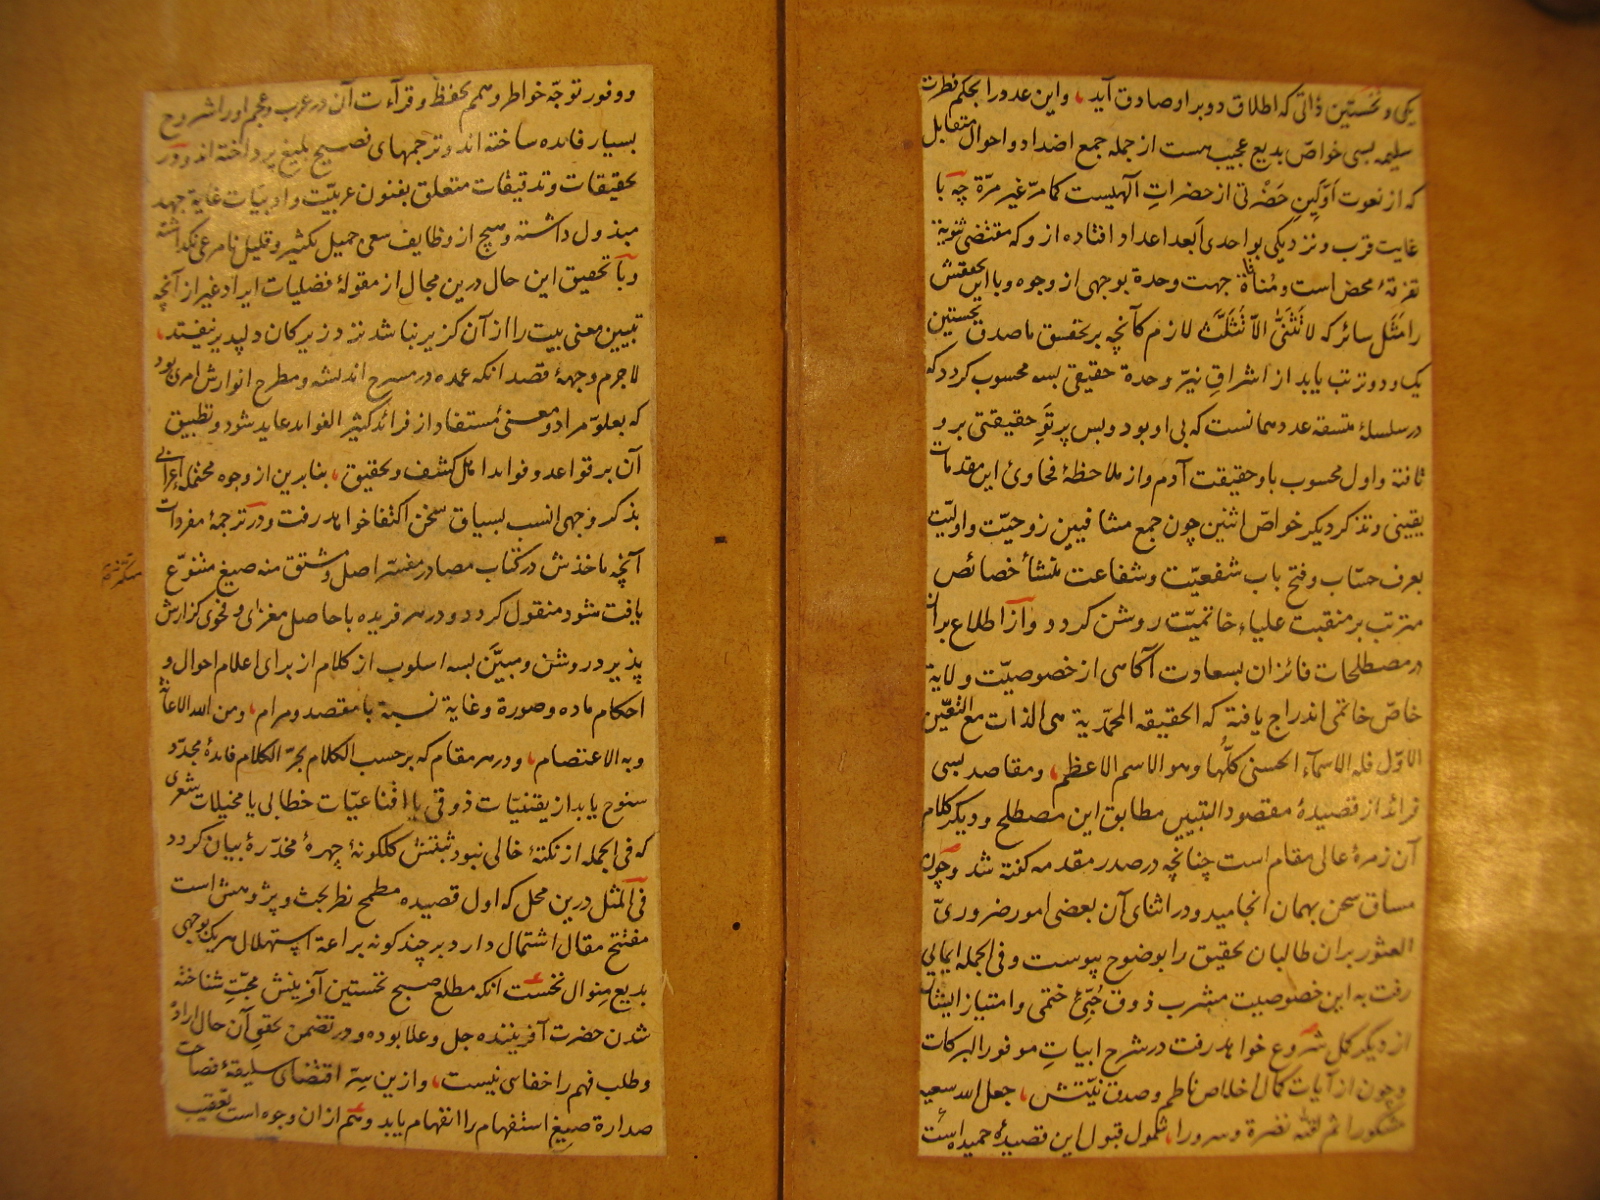 یکی و نخستین ذاتی که اطلاق دو برا و صادق آید، و این عدد را بحکم فطرت
سلیمه بسی خواصّ بدیع عجیب هست از جمله جمع اضداد و احوال متقابل
که از نعوت اوّلین حضرتی از حضراتِ الٓهیست کما مرّ غیر مرّة چه با
غایت قرب و نزدیکی بواحدی اَبعد اعداد افتاده از و که مقتضی ثنویة
تفرقهٔ محض است و مُنافاة جهت وحدة بوجهی از وجوه و با این تحققش
را مَثَل سائر که لا نُثَنّی الاّ نُثَلَّث لازم کآنچه بر تحقیق ما صدق نخستین
یک و دو ترتب یابد از اشراقِ نیّر وحدة حقیقی بسه محسوب کردد که
در سلسلهٔ متسقه عدد همانست که بی او بود و بس پرتوِ حقیقتی بر و
تافته و اول محسوب باو حقیقت آدم و از ملاحظهٔ فحاوئ این مقدمات
یقینی و تذکر دیکر خواصّ اثنین چون جمع مشافیین زوجیّت و اولیّت
بعرف حسّاب و فتح باب شفعیّت و شفاعت منشأ خصائص
مترتب بر منقبت علیاء خاتمیّت روشن کردد و از اطلاع بران
در مصطلحات فائزان بسعادت آکاهی از خصوصیّت ولایة
خاصّ خاتمی اندراج یافته که الحقیقه المحمّدیة هی الذات مع التعیّن
الاوّل فله الاسمآء الحسنی کلُّها و هو الاسم الاعظم، و مقاصد بسی
فرائد از قصیدهٔ مقصود التبیین مطابق این مصطلح و دیکر کلام
آن زمرهٔ عالی مقام است چنانچه در صدر مقدمه کفته شد و چون
مساق سخن بهمان انجامید و در اثنای آن بعضی امور ضروریّ
العثور بران طالبان تحقیق را بوضوح پیوست و فی الجمله ایمائی
رفت به این خصوصیت مشرب ذوق حُبّیِ ختمی و امتیاز ایشان
از دیکر کمل شروع خواهد رفت در شرح ابیاتِ موفور البرکات
و چون از آیات کمال اخلاص ناظم و صدق نیّتش، جعل الله سعیه
مشکورا ثم لقّه نضرة و سرورا، شمول قبول این قصیدهٔ حمیده است
و وفور توجّه خواطر و همم بحفظ و قرآءت آن در عرب و عجم او را شروح
بسیار فائده ساخته اند و ترجمهای فصیح بلیغ پرداخته اند و در
تحقیقات و تدقیقات متعلق بفنون عربیّت و ادبیّات غایة جهد
مبذول داشته و هیچ از وظایف سعی جمیل بکثیر و قلیل نامرعی نکذاشته
و با تحقیق این حال درین مجال از مقولهٔ فضلیات ایراد غیر از آنچه
تبیین معنی بیت را از آن کزیر نباشد نزد زیرکان دلپدیر نیفتد،
لاجرم وجههٔ قصد انکه عمده در مسرح اندیشه و مطرح انوارش امری بود
که بعلوّ مراد و معنئ مستفاد از فرائد کثیر الفواید عاید شود و تطبیق
آن بر قواعد و فواید اهل کشف و تحقیق، بنا برین از وجوه محتملهٔ اعرابی
بذکر وجهی انسب بسیاق سخن اکتفا خواهد رفت و در ترجمهٔ مفردات
آنچه ماخذش در کتاب مصادر مفسّر اصل و مشتق منه صیغ متنوّع
یافت شود منقول کردد و در هر فریده با حاصل مغزی و فحوی کزارش
پذیرد روشن و مبیَّن بسه اسلوب از کلام از برای اعلام احوال و
احکام ماده و صورة و غایة نسبة با مقصد و مرام، و من الله الاعانه
و به الاعتصام، و در هر مقام که بر حسب الکلام یجرّ الکلام فائدهٔ مجدّد
سنوح یابد از یقنیّات ذوقی یا اقناعیّات خطابی یا مخیلات شعری
که فی الجمله از نکتهٔ خالی نبود ثبتش کلکونهٔ چهرهٔ مخدّرهٔ بیان کردد
فی المثل درین محل که اول قصیده مطمح نظر بحث و پژوهش است
مفتتح مقال اشتمال دارد بر چند کونه براعة استهلال هریک بوجهی
بدیع منوال نخست انکه مطلع صبح نخستین آفرینش محبّتِ شناخته
شدن حضرت آفریننده جل و علا بوده و در تضمن تحققِ آن حال ارادهٔ
و طلب فهم را خفای نیست، و ازین سِرّ اقتضای سلیقهٔ فصاحت
صدارة صیغ استفهام را انفهام یابد و هم از ان وجوه است تعقیب